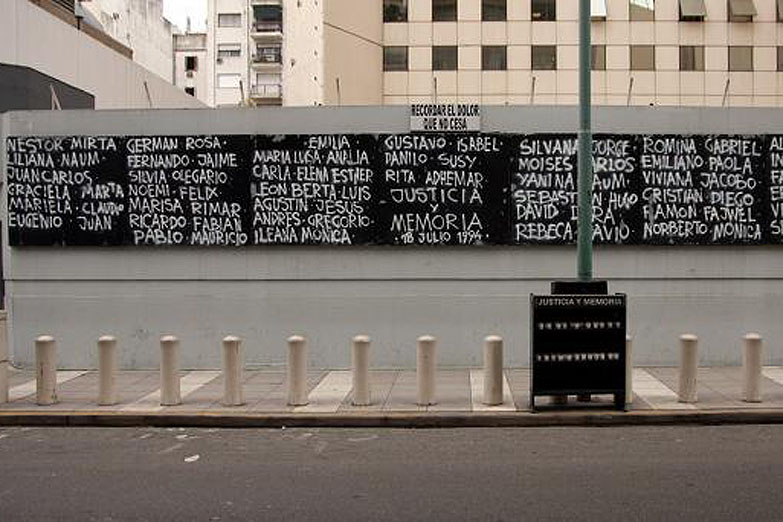 RECORDAR EL DOLOR
QUE NO CESA
NESTOR MIRTA
LILIANA NAUM
JUAN CARLOS
GRACIELA MARTA
MARIELA CLAUDIO
EUGENIO JUAN
GERMAN ROSA
FERNANDO JAIME
SILVIA OLEGARIO
NOEMI FELIX
MARISA RIMAR
RICARDO FABIAN
PABLO MAURICIO
EMILIA
MARIA LUISA ANALIA
CARLA ELENA ESTHER
LEON BERTA LUIS
AGUSTIN JESUS
ANDRES GREGORIO
ILEANA MONICA
GUSTAVO ISABEL
DANILO SUSY
RITA ADHEMAR
JUSTICIA
Y
MEMORIA
18 JULIO 1994
SILVANA JORGE
MOISES CARLOS
YANINA NAUM
SEBASTIAN HUGO
DAVID
REBECA
ROMINA GABRIEL
EMILIANO PAOLA
VIVIANA JACOBO
CRISTIAN DIEGO
RAMON FAJWEL
NORBERTO MONICA
JUSTICIA Y MEMORIA